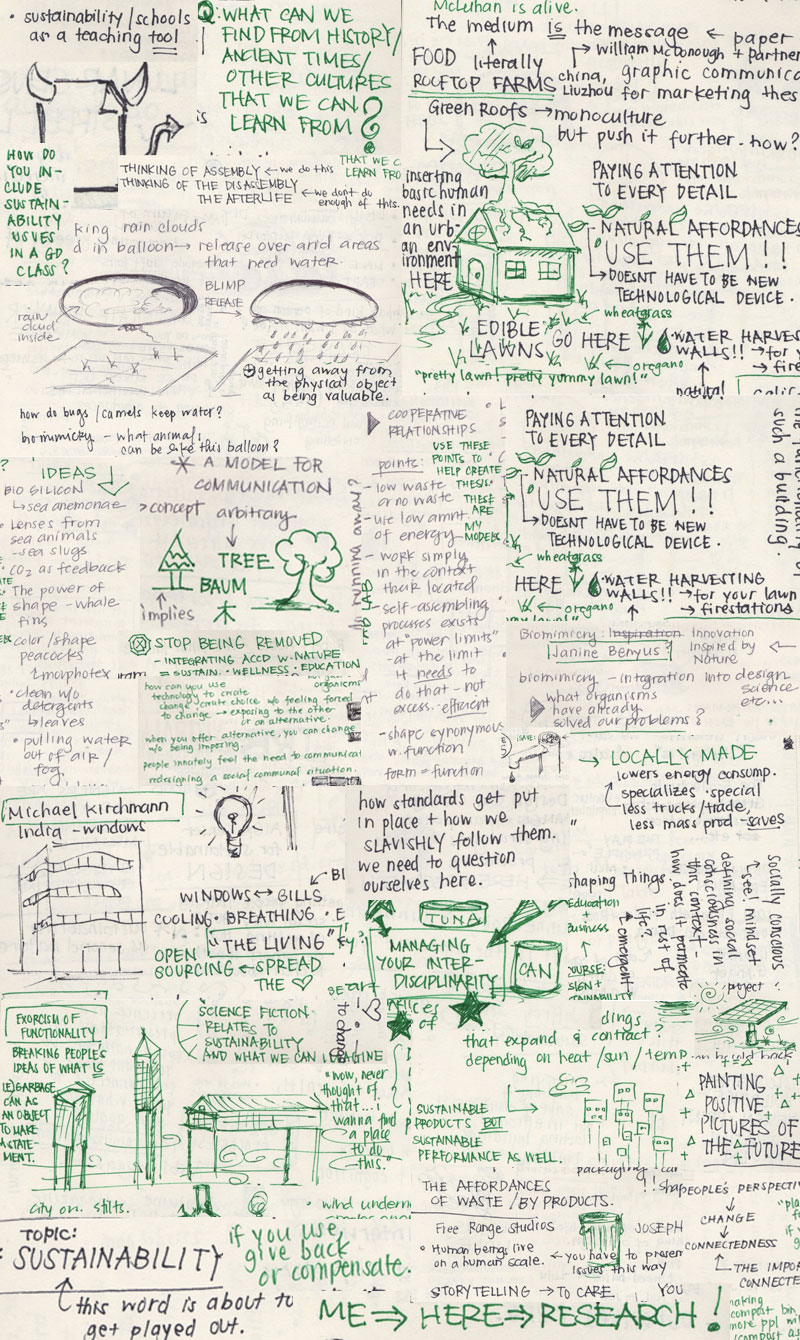 • sustainability/schools
as a teaching tool
Q: WHAT CAN WE
FIND FROM HISTORY/
ANCIENT TIMES/
OTHER CULTURES
THAT WE CAN
LEARN FROM?
is
McLuhan is alive.
The medium is the message ← paper
FOOD literally
→ William McDonough + partner
ROOFTOP FARMS
china, graphic communica
Liuzhou for marketing thes
Green Roofs → monoculture
but push it further. how?
HOW DO
YOU IN-
CLUDE
SUSTAIN-
ABILITY
ISSUES
IN A GD
CLASS?
THINKING OF ASSEMBLY ← we do this
THINKING OF THE DISASSEMBLY
THE AFTERLIFE ← we don't do
enough of this.
THAT WE C
LEARN FRO
inserting
basic human
needs in
an urb-
an env-
ironment
HERE
PAYING ATTENTION
TO EVERY DETAIL
NATURAL AFFORDANCES
USE THEM!!
DOESNT HAVE TO BE NEW
TECHNOLOGICAL DEVICE.
king rain clouds
d in balloon → release over arid areas
that need water.
BLIMP
RELEASE
rain
cloud
inside
getting away from
the physical object
as being valuable.
wheatgrass
EDIBLE
LAWNS GO HERE
WATER HARVES
WALLS!! → for y
→ fire
oregano
"pretty lawn! pretty yummy lawn!"
natural
how do bugs/camels keep water?
biomimicky - what animals
can be like this balloon?
COOPERATIVE
RELATIONSHIPS
USE THESE
POINTS TO
HELP CREATE
THESIS.
THESE
ARE
MY
MODELS
points:
- low waste
or no waste
- use low amnt.
of energy
- work simply
in the context
their located
- self-assembling
processes exists
at "power limits"
- at the limit
it needs to
do that - not
excess. efficient
- shape synonymous
w. function
form = function
PAYING ATTENTION
TO EVERY DETAIL
NATURAL AFFORDANCES
USE THEM!!
DOESNT HAVE TO BE NEW
TECHNOLOGICAL DEVICE.
wheatgrass
HERE
WATER HARVESTING
WALLS!! → for your lawn
→ firestations
oregano
such a building.
IDEAS
BIO SILICON
sea anemonae
• Lenses from
sea animals
- sea slugs
• CO2 as feedback
• The power of
shape - whale
fins
• color/shape
peacocks
morphotex
• clean w/o
detergents
leaves
• pulling water
out of air/
fog.
* A MODEL FOR
COMMUNICATION
concept arbitrary
TREE
BAUM
木
implies
running away?
STOP BEING REMOVED
- INTEGRATING ACCD W. NATURE
= SUSTAIN. • WELLNESS • EDUCATION
organisms
how can you use
technology to create
change/create choice w/o feeling forced
to change → exposing to the other
or an alternative.
when you offer alternative, you can change
w/o being imposing.
people innately feel the need to communicat
redesigning a social communal situation.
Biomimicry: Inspiration Innovation
Inspired by
Nature
Janine Benyus?
biomimicry - integration into design
science
etc...
what organisms
have already
solved our problems?
→ LOCALLY MADE
lowers energy consump.
specializes • special
less trucks/trade,
less mass prod - saves
Michael Kirchmann
India - windows
WINDOWS ↔ GILLS
COOLING • BREATHING • E
"THE LIVING"
OPEN
SOURCING ← SPREAD
THE ♡
how standards get put
in place + how we
SLAVISHLY follow them.
we need to question
ourselves here.
TUNA
MANAGING
YOUR INTER-
DISCIPLINARITY
CAN
shaping Things.
Education
+
Business
emergent
socially conscious
see! mindset
defining social
consciousness in
this context -
how does it permeate
in rest of
life?
project
EXORCISM OF
FUNCTIONALITY
BREAKING PEOPLE'S
IDEAS OF WHAT IS
IE) GARBAGE
CAN AS
AN OBJECT
TO MAKE
A STATE-
MENT.
SCIENCE FICTION
RELATES TO
SUSTAINABILITY
AND WHAT WE CAN IMAGINE
"now, never
thought of
that... I
wanna find
a place
to do
this."
city on stilts.
• wind undern
dings
that expand & contract?
depending on heat/sun/temp.
SUSTAINABLE
PRODUCTS BUT
SUSTAINABLE
PERFORMANCE AS WELL.
packaging
PAINTING
POSITIVE
PICTURES OF
THE FUTURE
THE AFFORDANCES
OF WASTE/BY PRODUCTS.
PEOPLE'S PERSPECTIV
CHANGE
CONNECTEDNESS
THE IMPO
CONNECTE
Free Range Studios
JOSEPH
• Human beings live
on a human scale.
← you have to present
issues this way
STORYTELLING → TO CARE
YOU
TOPIC:
SUSTAINABILITY
this word is about to
get played out.
if you use,
give back
or compensate.
ME ⇒ HERE ⇒ RESEARCH!
making
compost bin
more ppl
compost